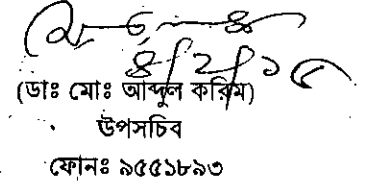 ৪/২/১৫
(ডাঃ মোঃ আব্দুল করিম)
উপসচিব
ফোনঃ ৯৫৫১৮৯৩